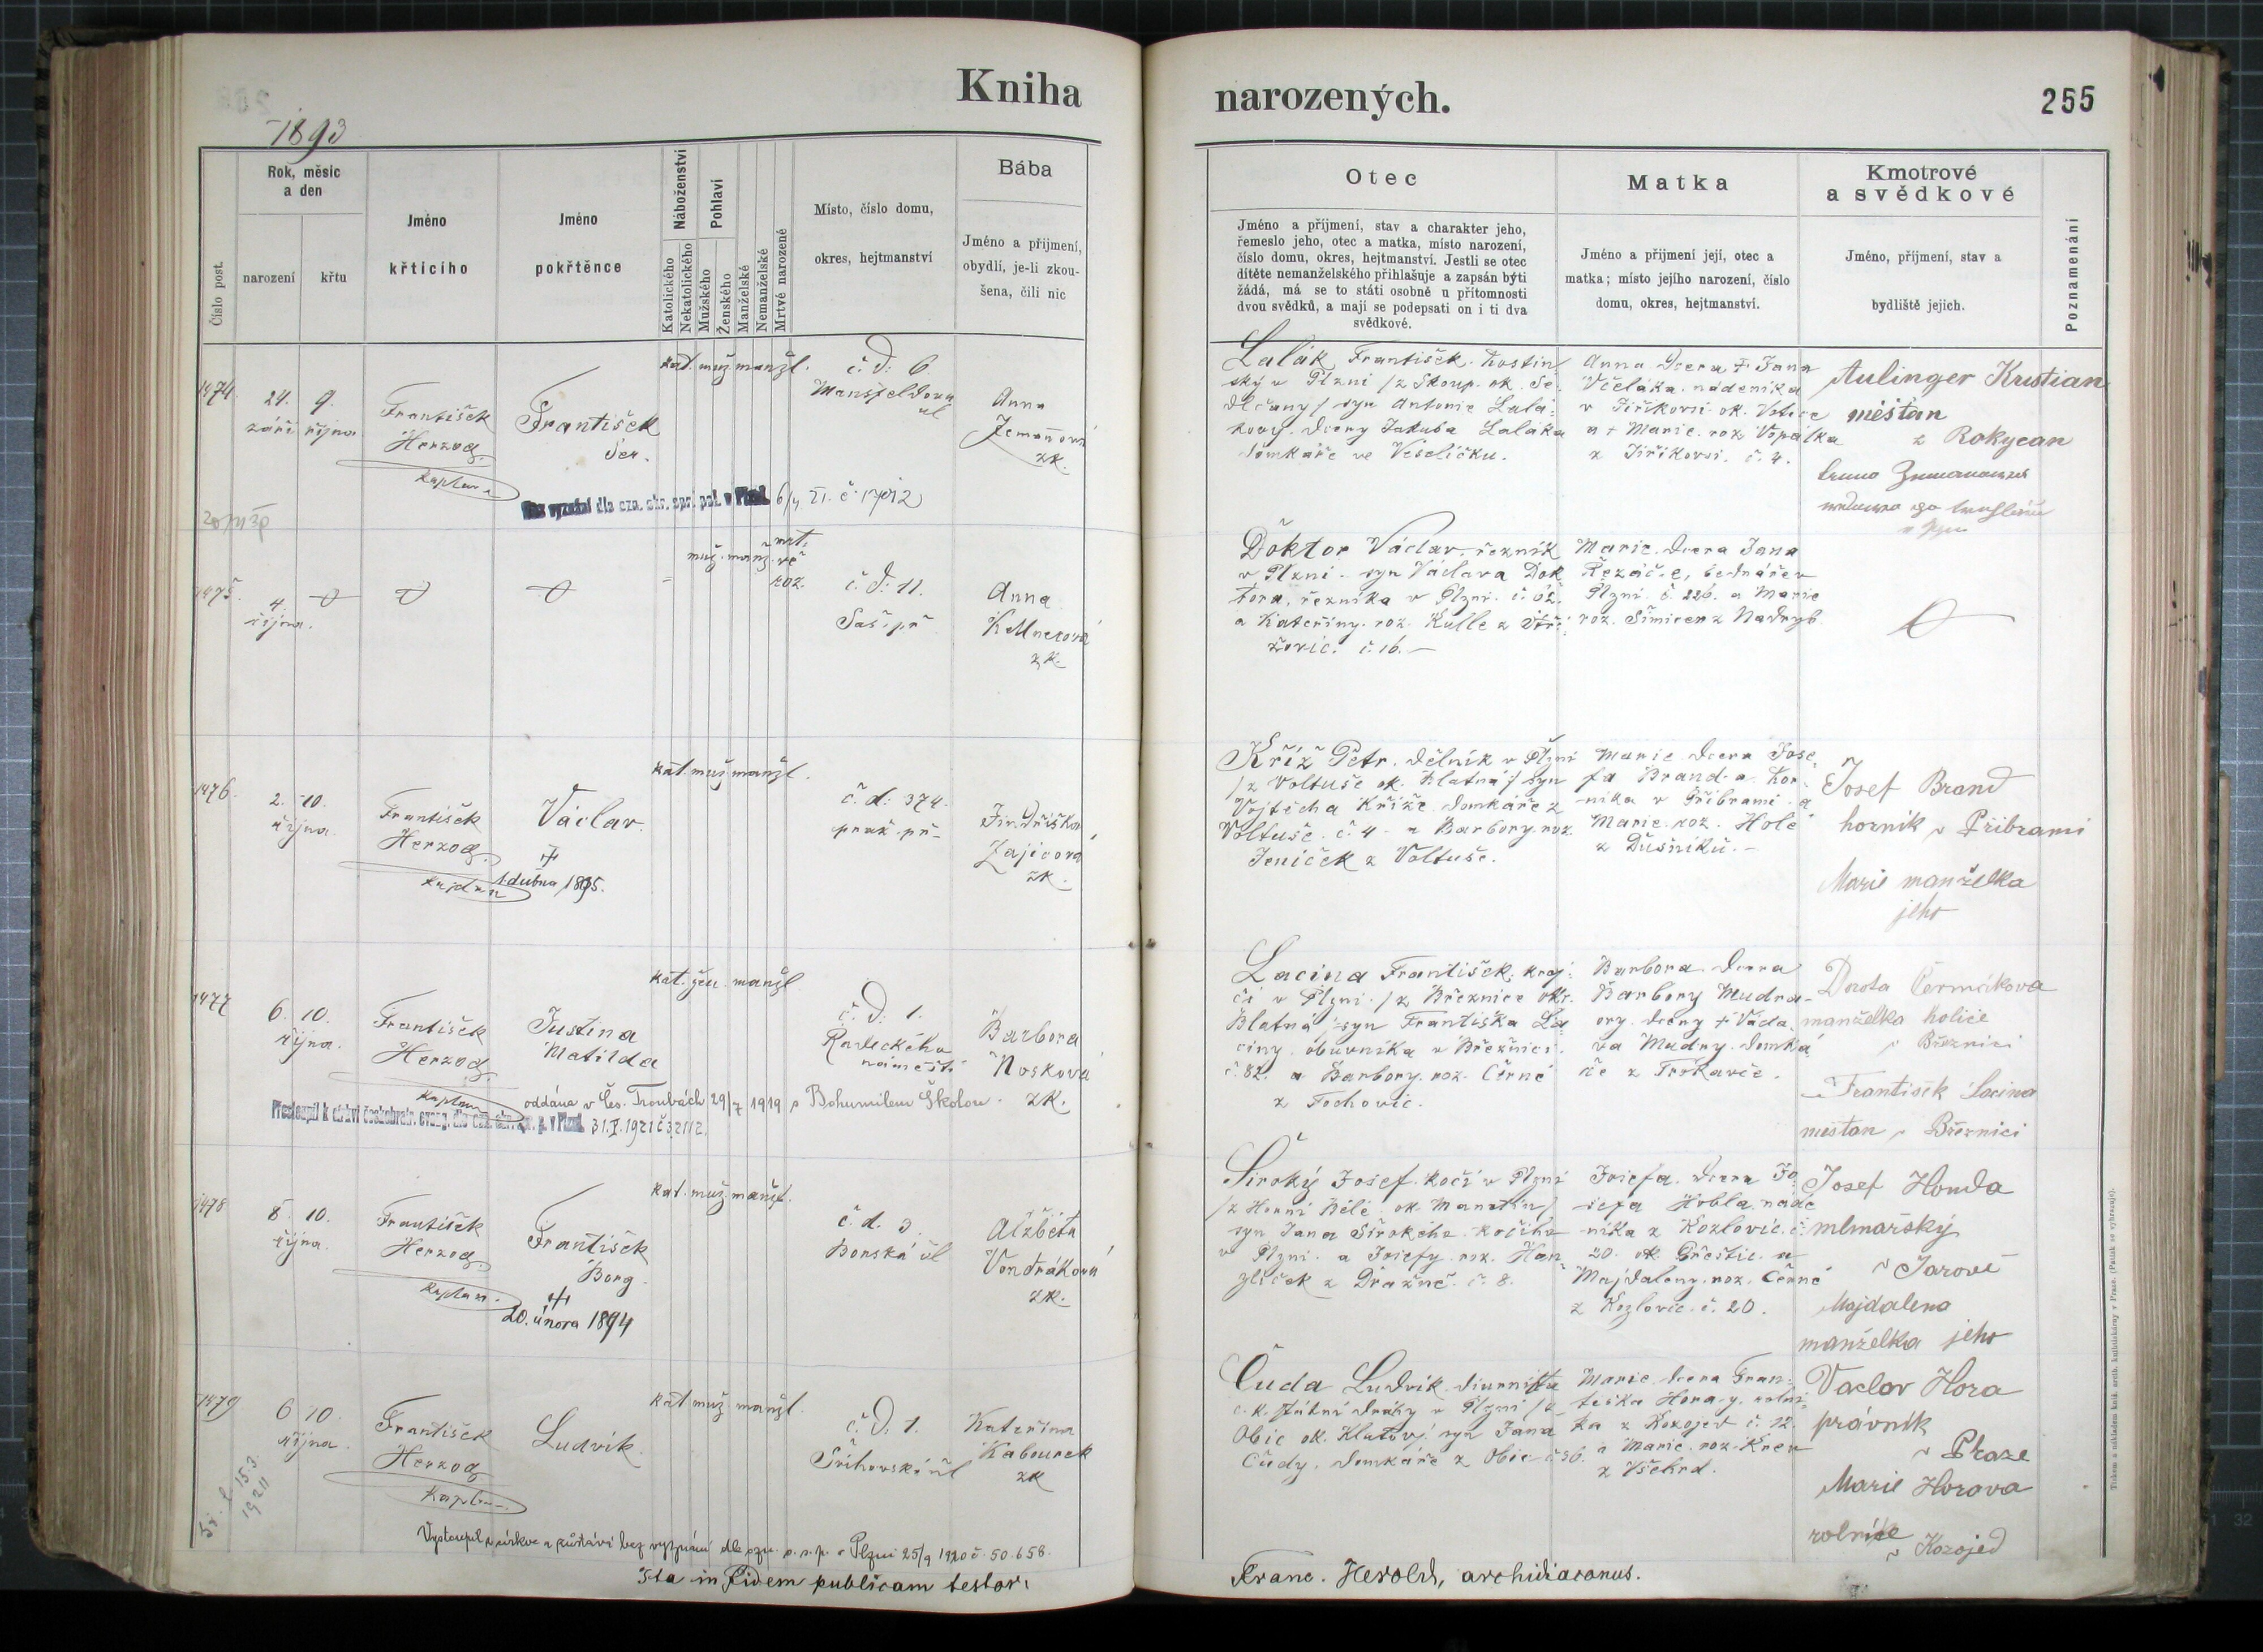 Kniha
narozených.
255
1893
Číslo post.
Rok, měsíc
a den
narození
křtu
Jméno
křticího
Jméno
pokřtěnce
Náboženství
Katolického
Nekatolického
Pohlaví
Mužského
Ženského
Manželské
Nemanželské
Mrtvě narozené
Místo, číslo domu,
okres, hejtmanství
Bába
Jméno a přijmení,
obydlí, je-li zkou-
šena, čili nic
Otec
Jméno a příjmení, stav a charakter jeho,
řemeslo jeho, otec a matka, místo narození,
číslo domu, okres, hejtmanství. Jestli se otec
dítěte nemanželského přihlašuje a zapsán býti
žádá, má se to státi osobně u přítomnosti
dvou svědků, a mají se podepsati on i ti dva
svědkové.
Matka
Jméno a přijmení její, otec a
matka; místo jejího narození, číslo
domu, okres, hejtmanství.
Kmotrové
a svědkové
Jméno, příjmení, stav a
bydliště jejich.
Poznamenání
1474
24. 9.
září října
František
Herzog
kaplan
František
Ser.
kat. muž. manžl.
č. d: 6
Mansfeldova
ul
Anna
Zemanová
zk.
Lalák František. hostin
ský v Plzni /z Skoup. ok. Se:
dlčany/ syn Antonie Lalá:
kovy. dcery Jakuba Laláka
domkáře ve Veselíčku.
Anna dcera + Jana
Včeláka. nádeníka
v Jiříkovi ok. Votice
a + Marie. roz Vopálka
z Jiříkovi. č. 4.
Aulinger Kristian
měšťan
z Rokycan
1475.
4.
října.
muž. manž. mrt.
vě
roz.
č. d: 11.
Saš. př
Anna
Kellnerová
zk.
Doktor Václav. řezník
v Plzni - syn Václava Dok
tora, řezníka v Plzni. č. 62.
a Kateřiny. roz. Kulle z
č. 16. —
Marie. dcera Jana
Řezáč-e, bednáře v
Plzni č. 226. a Marie
roz. Šimicer z Nadryb.
1476.
2. 10.
října.
František
Herzog
kaplan
Václav.
+
1. dubna 1895.
kat. muž manžl.
č. d: 374.
praž. př-
Jindřiška
Zajicová
zk.
Kříž Petr. dělník v Plzni
/z Voltuše ok. Blatná/ syn
Vojtěcha Kříže domkáře z
Voltuše. č. 4 - a Barbory. roz
Jeníček z Voltuše.
Marie dcera Jose
fa Brand-a hor
níka v Příbrami. a
Marie. roz. Holé
z Dušníků. -
Josef Brand
horník v Příbrami
Marie manželka
jeho
1477
6. 10.
října.
František
Herzog
kaplan
Justina
Matilda
kat. žen. manžl
č. d: 1.
Radeckého
náměstí
Barbora
Nosková
zk.
oddána v Čes. Troubách 29/7 1919 s Bohumilem Školou.
31.V.1921 č 32112.
Lacina František. krej:
čí v Plzni. /z Březnice okr.
Blatná/ syn Františka La
ciny. obuvníka v Březnici.
č. 82. a Barbory. roz. Černé
z Tochovic.
Barbora. dcera
Barbory Mudro-
ovy. dcery + Václa
va Mudry. domká
ře z Trokavče.
Dorota Čermáková
manželka holiče
v Březnici
František Lacina
mestan v Březnici
1478
8. 10.
října.
František
Herzog
kaplan.
František
Borg.
+
20. února 1894
kat. muž. manžl.
č. d. 3.
Borská úl
Alžběta
Vondráková
zk.
Široký Josef. kočí v Plzni
/z Horní Bělé. ok. Manětín/
syn Jana Širokého. kočího
v Plzni. a Josefy. roz. Han
zlíček z Dražně. č. 8.
Josefa. dcera Jo
sefa Hobla. nade
níka z Kozlovic. č:
20. ok. Přeštic. a
Majdaleny. roz. Černé
z Kozlovic. č. 20.
Josef Honda
mlinařský
v Jarově
Majdalena
manželka jeho
1479
6 10.
října.
František
Herzog
Kaplan.
Ludvík.
kat. muž. manžl.
č. d. 1.
Kateřina
Kabourek
zk
Čuda Ludvík. diurnista
c. k. státní dráhy v Plzni /z
Obic ok. Klatovy/ syn Jana
Čudy. domkáře z Obic č 36.
Marie. dcera Fran:
tiška Hora-y. rolní
ka z Kozojed č. 12.
a Marie. roz. Krev
z Všehrd.
Vaclav Hora
právník
v Praze
Marie Horova
rolnice
v Kozojed
153
1921
Vystoupil z církve a zůstává bez vyznání dle ozn. o. s. p. v Plzni 25/9 1920 č. 50.658.
Ita in fidem publicam testor:
Franc. Herold, archidiaconus.